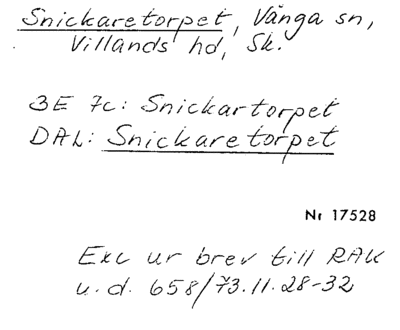 Snickaretorpet, Vånga sn,
Villands hd, Sk.
3E 7c: Snickartorpet
DAL: Snickaretorpet
Nr 17528
Exc ur brev till RAK
u.d. 658/73.11.28-32